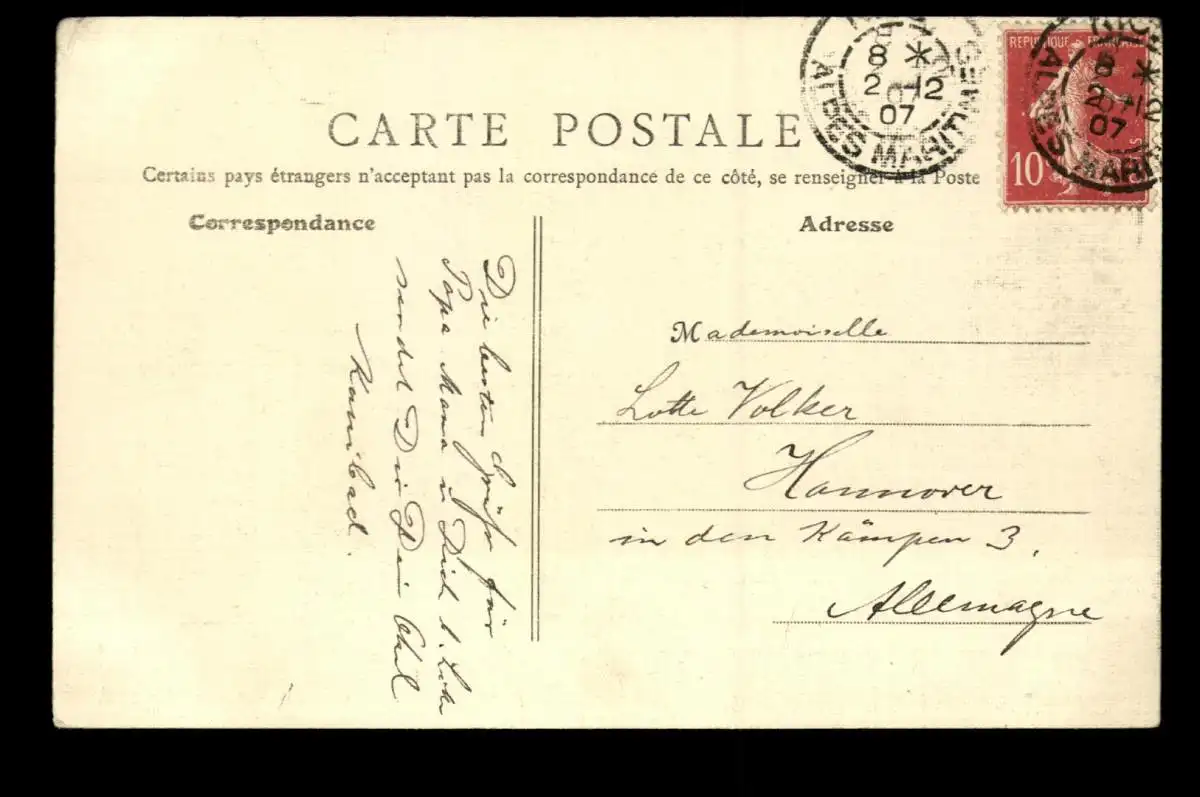 CARTE POSTALE
Certains pays étrangers n'acceptant pas la correspondance de ce côté, se renseigner à la Poste
Correspondance
Adresse
REPUBLIQUE FRANÇAISE
10c
8 *
2 12
07
ALPES MARITIMES
8 *
2 12
07
ALPES MARI
Die besten Grüße für
Papa Mama u Dich l. Lotte
sendet Dir Dein
Mademoiselle
Lotte Volker
Hannover
in den Kämpen 3.
Allemagne